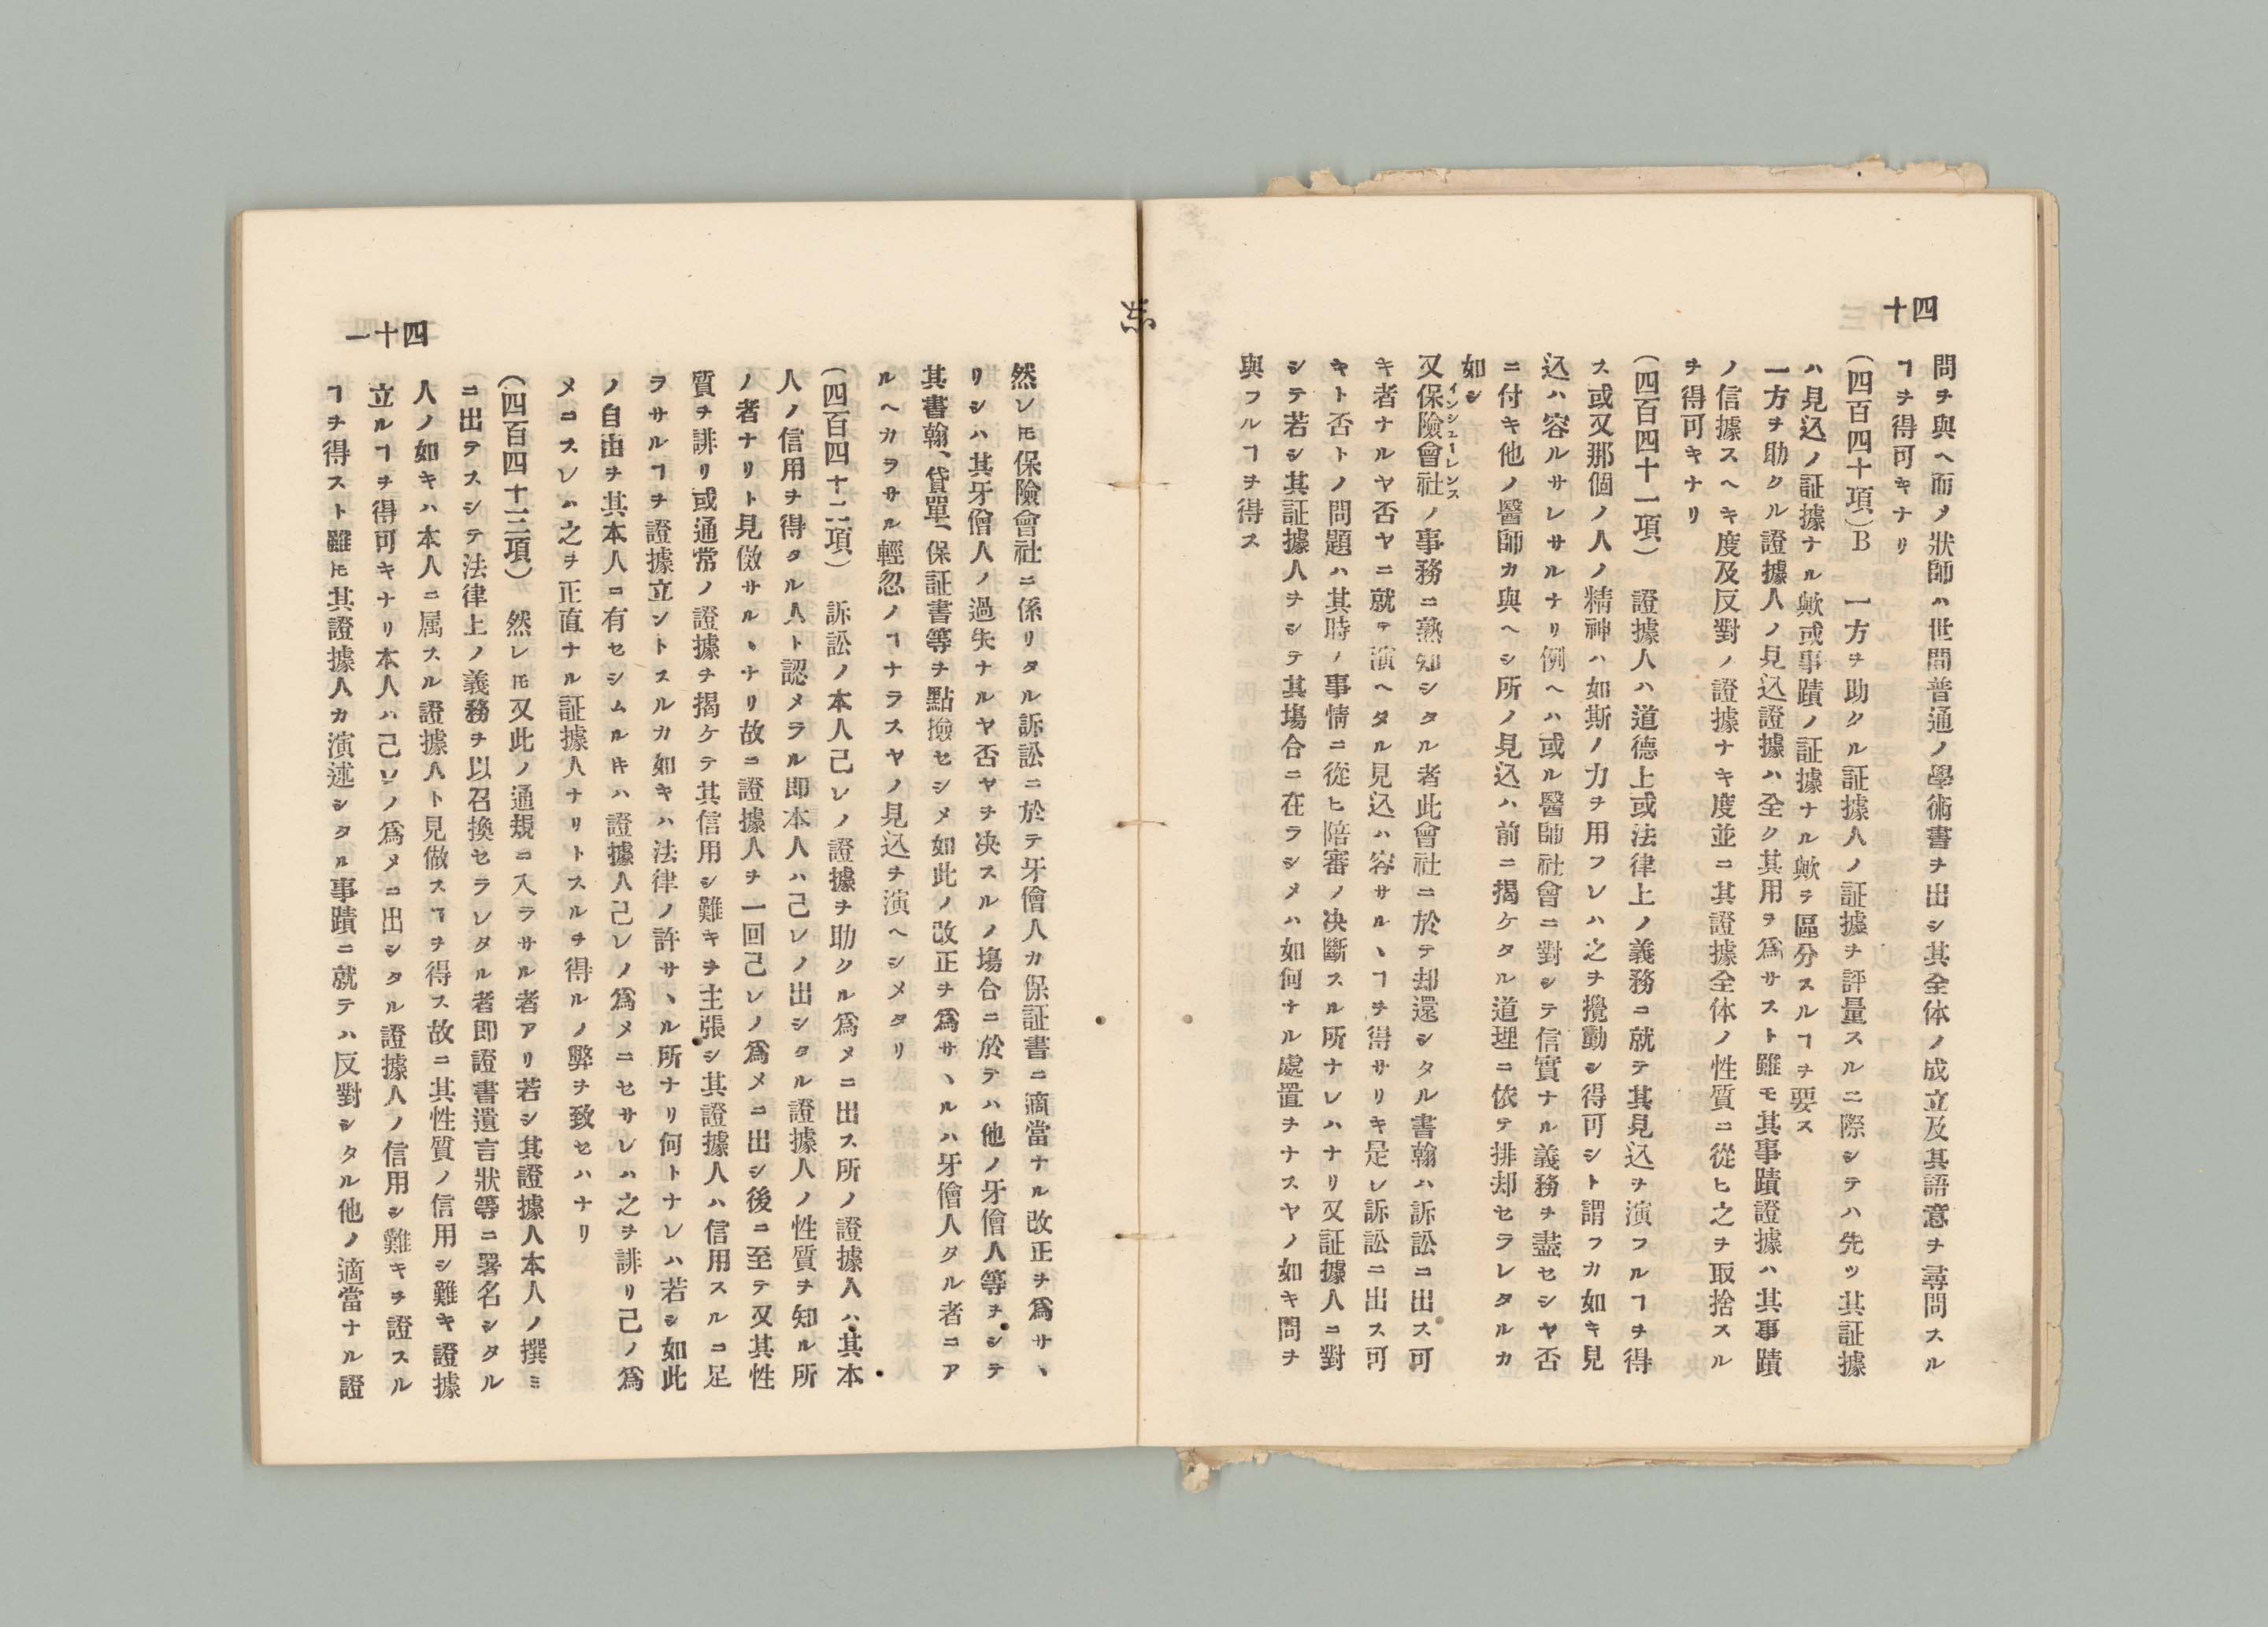 四十
問ヲ與ヘ而ノ狀師ハ世間普通ノ學術書ヲ出シ其全体ノ成立及其語意ヲ尋問スル
ヿヲ得可キナリ
（四百四十項）B 一方ヲ助クル証據人ノ証據ヲ評量スルニ際シテハ先ツ其証據
ハ見込ノ証據ナル歟或事蹟ノ証據ナル歟ヲ區分スルヿヲ要ス
一方ヲ助クル證據人ノ見込證據ハ全ク其用ヲ爲サスト雖モ其事蹟證據ハ其事蹟
ノ信據スヘキ度及反對ノ證據ナキ度並ニ其證據全体ノ性質ニ從ヒ之ヲ取捨スル
ヲ得可キナリ
（四百四十一項） 證據人ハ道德上或法律上ノ義務ニ就テ其見込ヲ演フルヿヲ得
ス或又那個ノ人ノ精神ハ如斯ノ力ヲ用フレハ之ヲ攪動シ得可シト謂フカ如キ見
込ハ容ルサレサルナリ例ヘハ或ル醫師社會ニ對シテ信實ナル義務ヲ盡セシヤ否
ニ付キ他ノ醫師カ與ヘシ所ノ見込ハ前ニ揭ケタル道理ニ依テ排却セラレタルカ
如シ
又保險會社インシューレンスノ事務ニ熟知シタル者此會社ニ於テ却還シタル書翰ハ訴訟ニ出ス可
キ者ナルヤ否ヤニ就テ演ヘタル見込ハ容サルヽヿヲ得サリキ是レ訴訟ニ出ス可
キト否トノ問題ハ其時ノ事情ニ從ヒ陪審ノ決斷スル所ナレハナリ又証據人ニ對
シテ若シ其証據人ヲシテ其塲合ニ在ラシメハ如何ナル處置ヲナスヤノ如キ問ヲ
與フルヿヲ得ス
四十一
然レ𪜈保險會社ニ係リタル訴訟ニ於テ牙儈人カ保証書ニ滴當ナル改正ヲ爲サヽ
リシハ其牙儈人ノ過失ナルヤ否ヤヲ決スルノ塲合ニ於テハ他ノ牙儈人等ヲシテ
其書翰、貸單、保証書等ヲ點撿セシメ如此ノ改正ヲ爲サヽルハ牙儈人タル者ニア
ルヘカラサル輕忽ノヿナラスヤノ見込ヲ演ヘシメタリ
（四百四十二項） 訴訟ノ本人己レノ證據ヲ助クル爲メニ出ス所ノ證據人ハ其本
人ノ信用ヲ得タル人ト認メラル即本人ハ己レノ出シタル證據人ノ性質ヲ知ル所
ノ者ナリト見傚サルヽナリ故ニ證據人ヲ一回己レノ爲メニ出シ後ニ至テ又其性
質ヲ誹リ或通常ノ證據ヲ揭ケテ其信用シ難キヲ主張シ其證據人ハ信用スルニ足
ラサルヿヲ證據立ントスルカ如キハ法律ノ許サヽル所ナリ何トナレハ若シ如此
ノ自由ヲ其本人ニ有セシムル𪜈ハ證據人己レノ爲メニセサレハ之ヲ誹リ己ノ爲
メニスレハ之ヲ正直ナル証據人ナリトスルヲ得ルノ弊ヲ致セハナリ
（四百四十三項） 然レ𪜈又此ノ通規ニ入ラサル者アリ若シ其證據人本人ノ撰ミ
ニ出テスシテ法律上ノ義務ヲ以召換セラレタル者即證書遺言狀等ニ署名シタル
人ノ如キハ本人ニ属スル證據人ト見傚スヿヲ得ス故ニ其性質ノ信用シ難キ證據
立ルヿヲ得可キナリ本人ハ己レノ爲メニ出シタル證據人ノ信用シ難キヲ證スル
ヿヲ得スト雖𪜈其證據人カ演述シタル事蹟ニ就テハ反對シタル他ノ適當ナル證